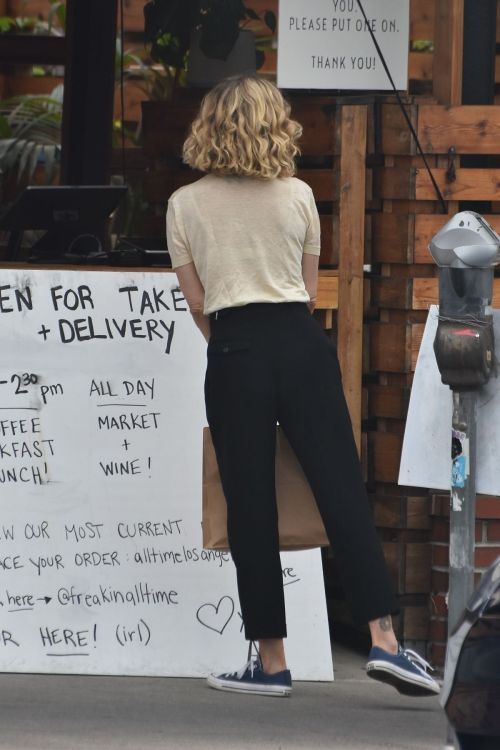 YOU,
PLEASE PUT ONE ON.
THANK YOU!
EN FOR TAKE
+ DELIVERY
-2³⁰ pm
FFEE
KFAST
UNCH!
ALL DAY
MARKET
+
WINE!
W OUR MOST CURRENT
ACE YOUR ORDER: alltimelosangel
here → @freakinalltime
R HERE! (irl)